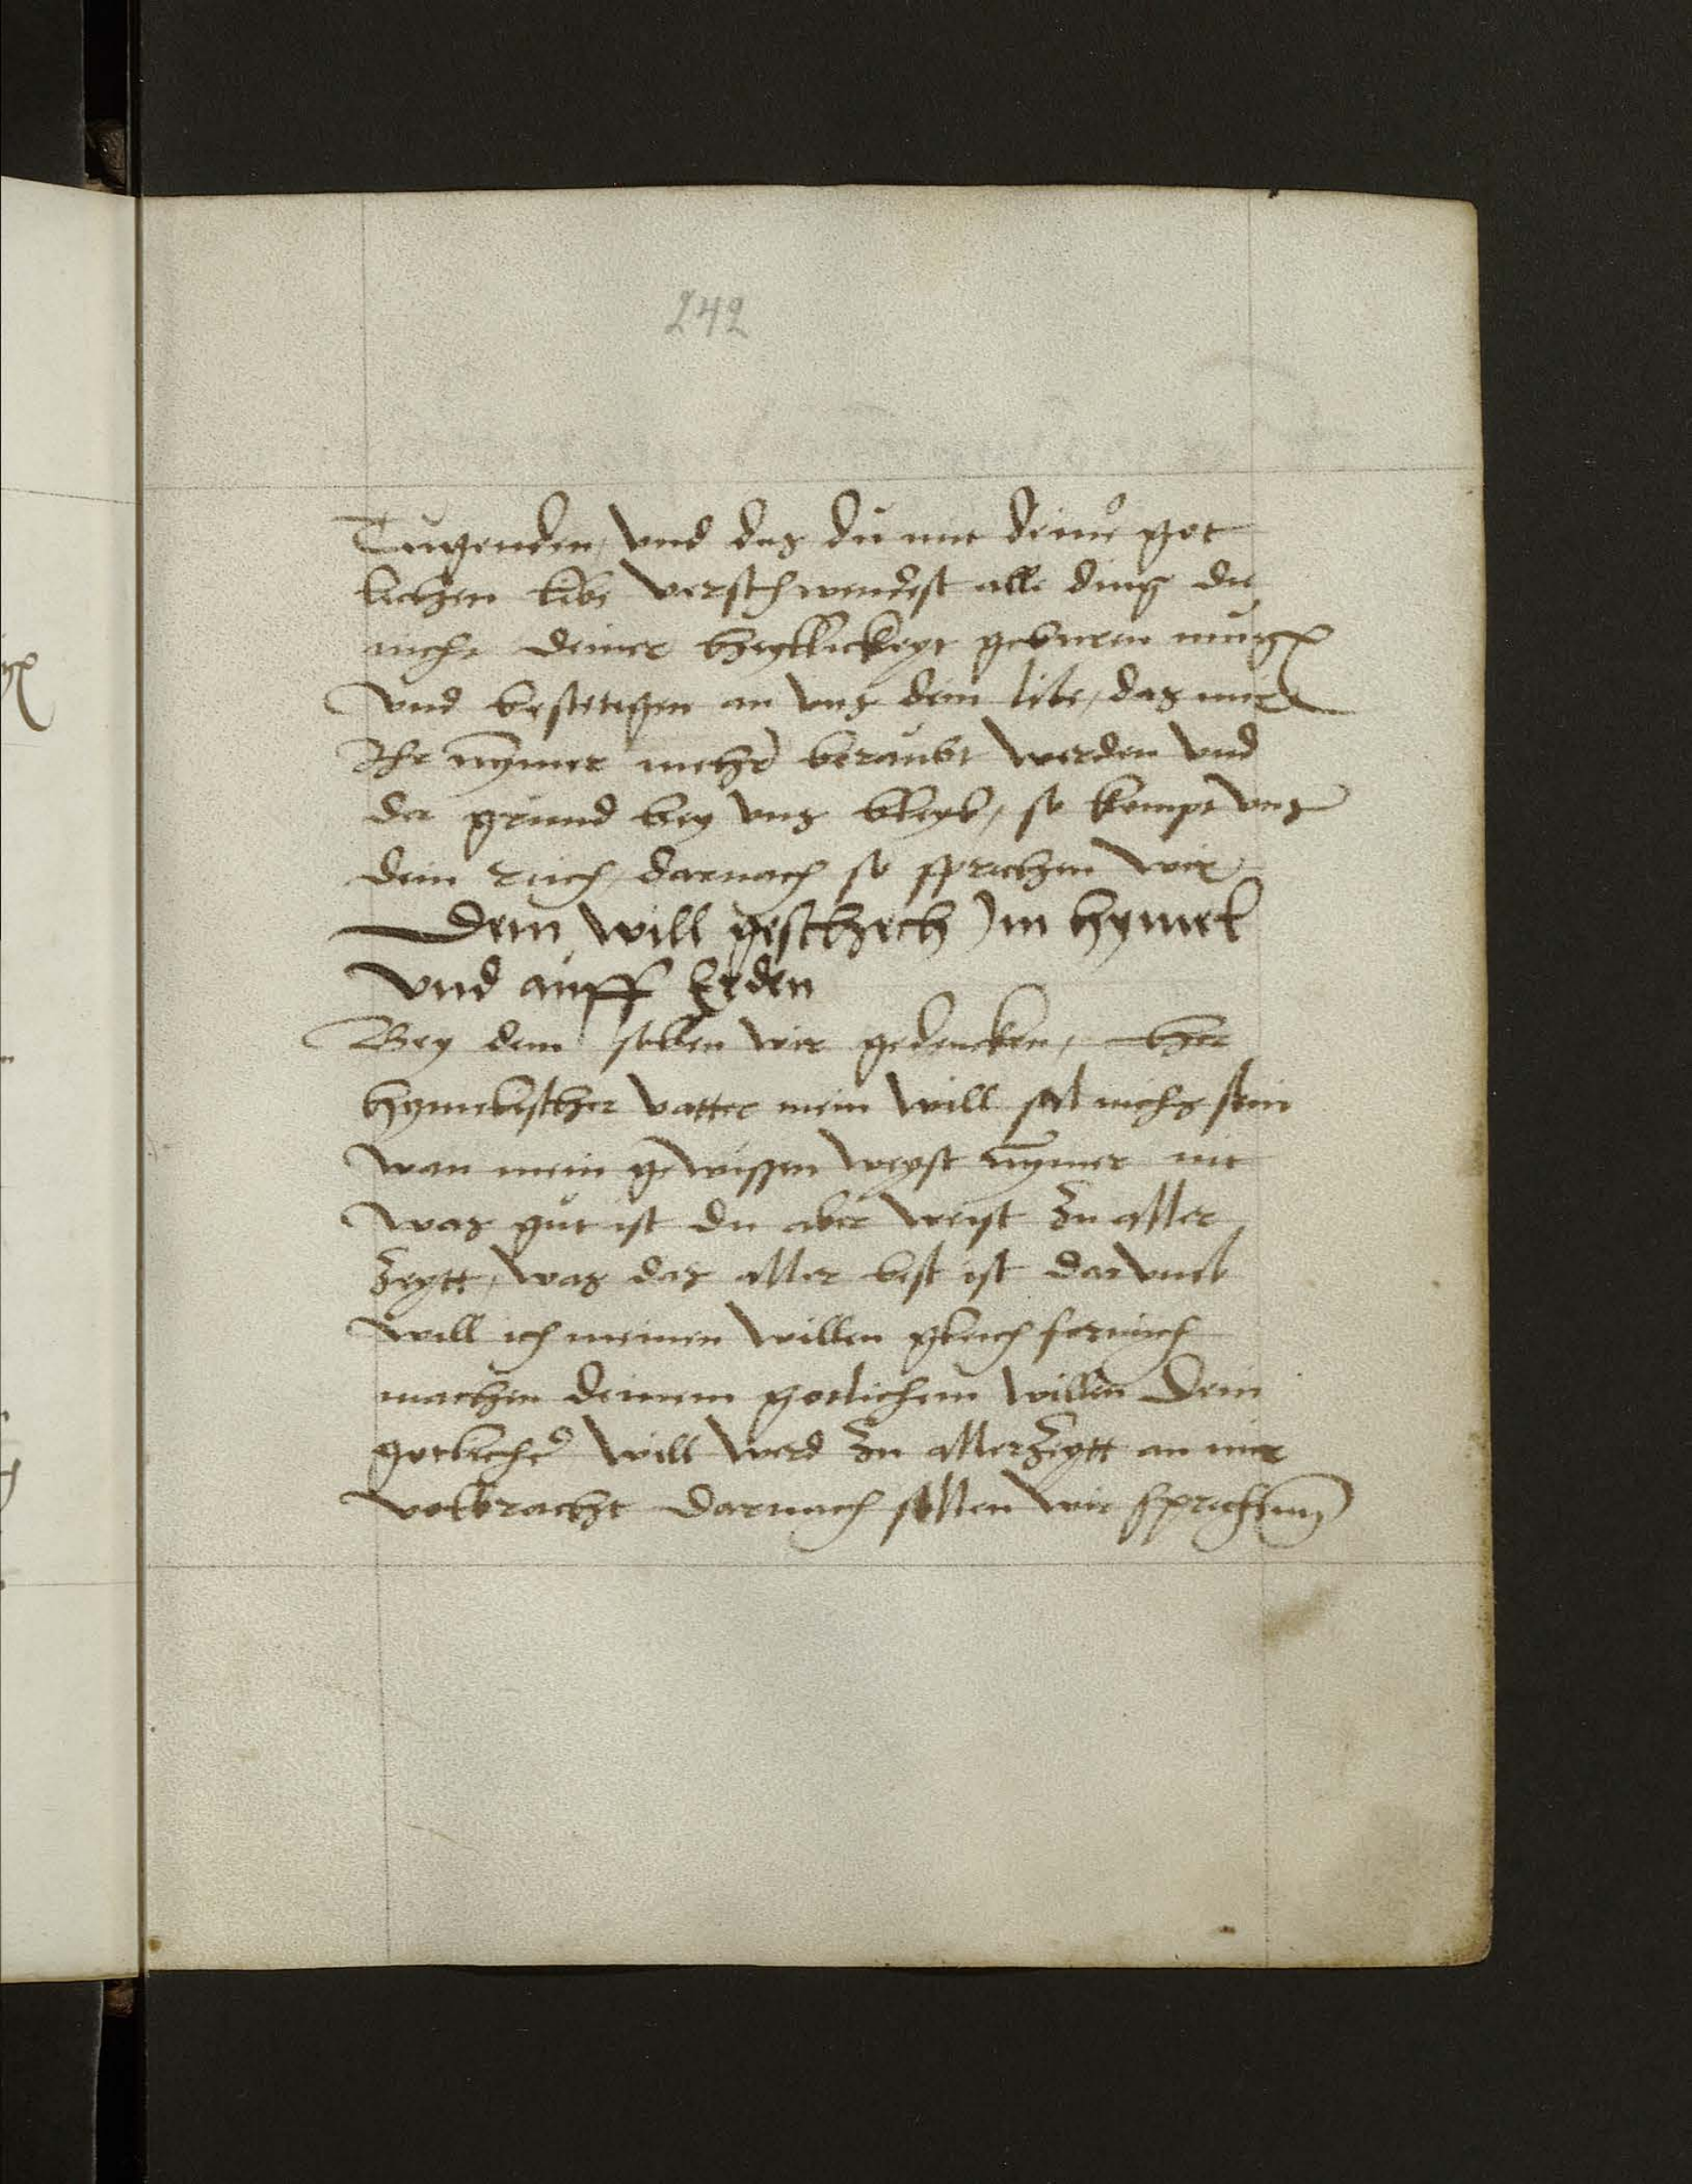 242
Tugenden, und das du mit deiner got
lichen libe verschwendest alle ding die
nicht deiner heyllickeyt geburen mugen
und bestetigen an uns dein libe, das mir
Ihr nymmer mehr beraubt werden und
der grund bey uns bleyb, so kompt uns
dein reich, darnach so sprechen wir
Dein will geschech im hymel
und auff Erden
Bey dem sollen wir gedencken, her
hymelischer vatter mein will sol nichs sein
wan mein gewissen weyst nymmer nit
was gut ist du aber weist zu aller
zeytt, was das aller best ist darumb
will ich meinen willen gleich formich
machen deinem gotlichem willen Dein
gotlicher will werd zu aller zeytt an mir
volbracht Darnach sollen wir sprechen